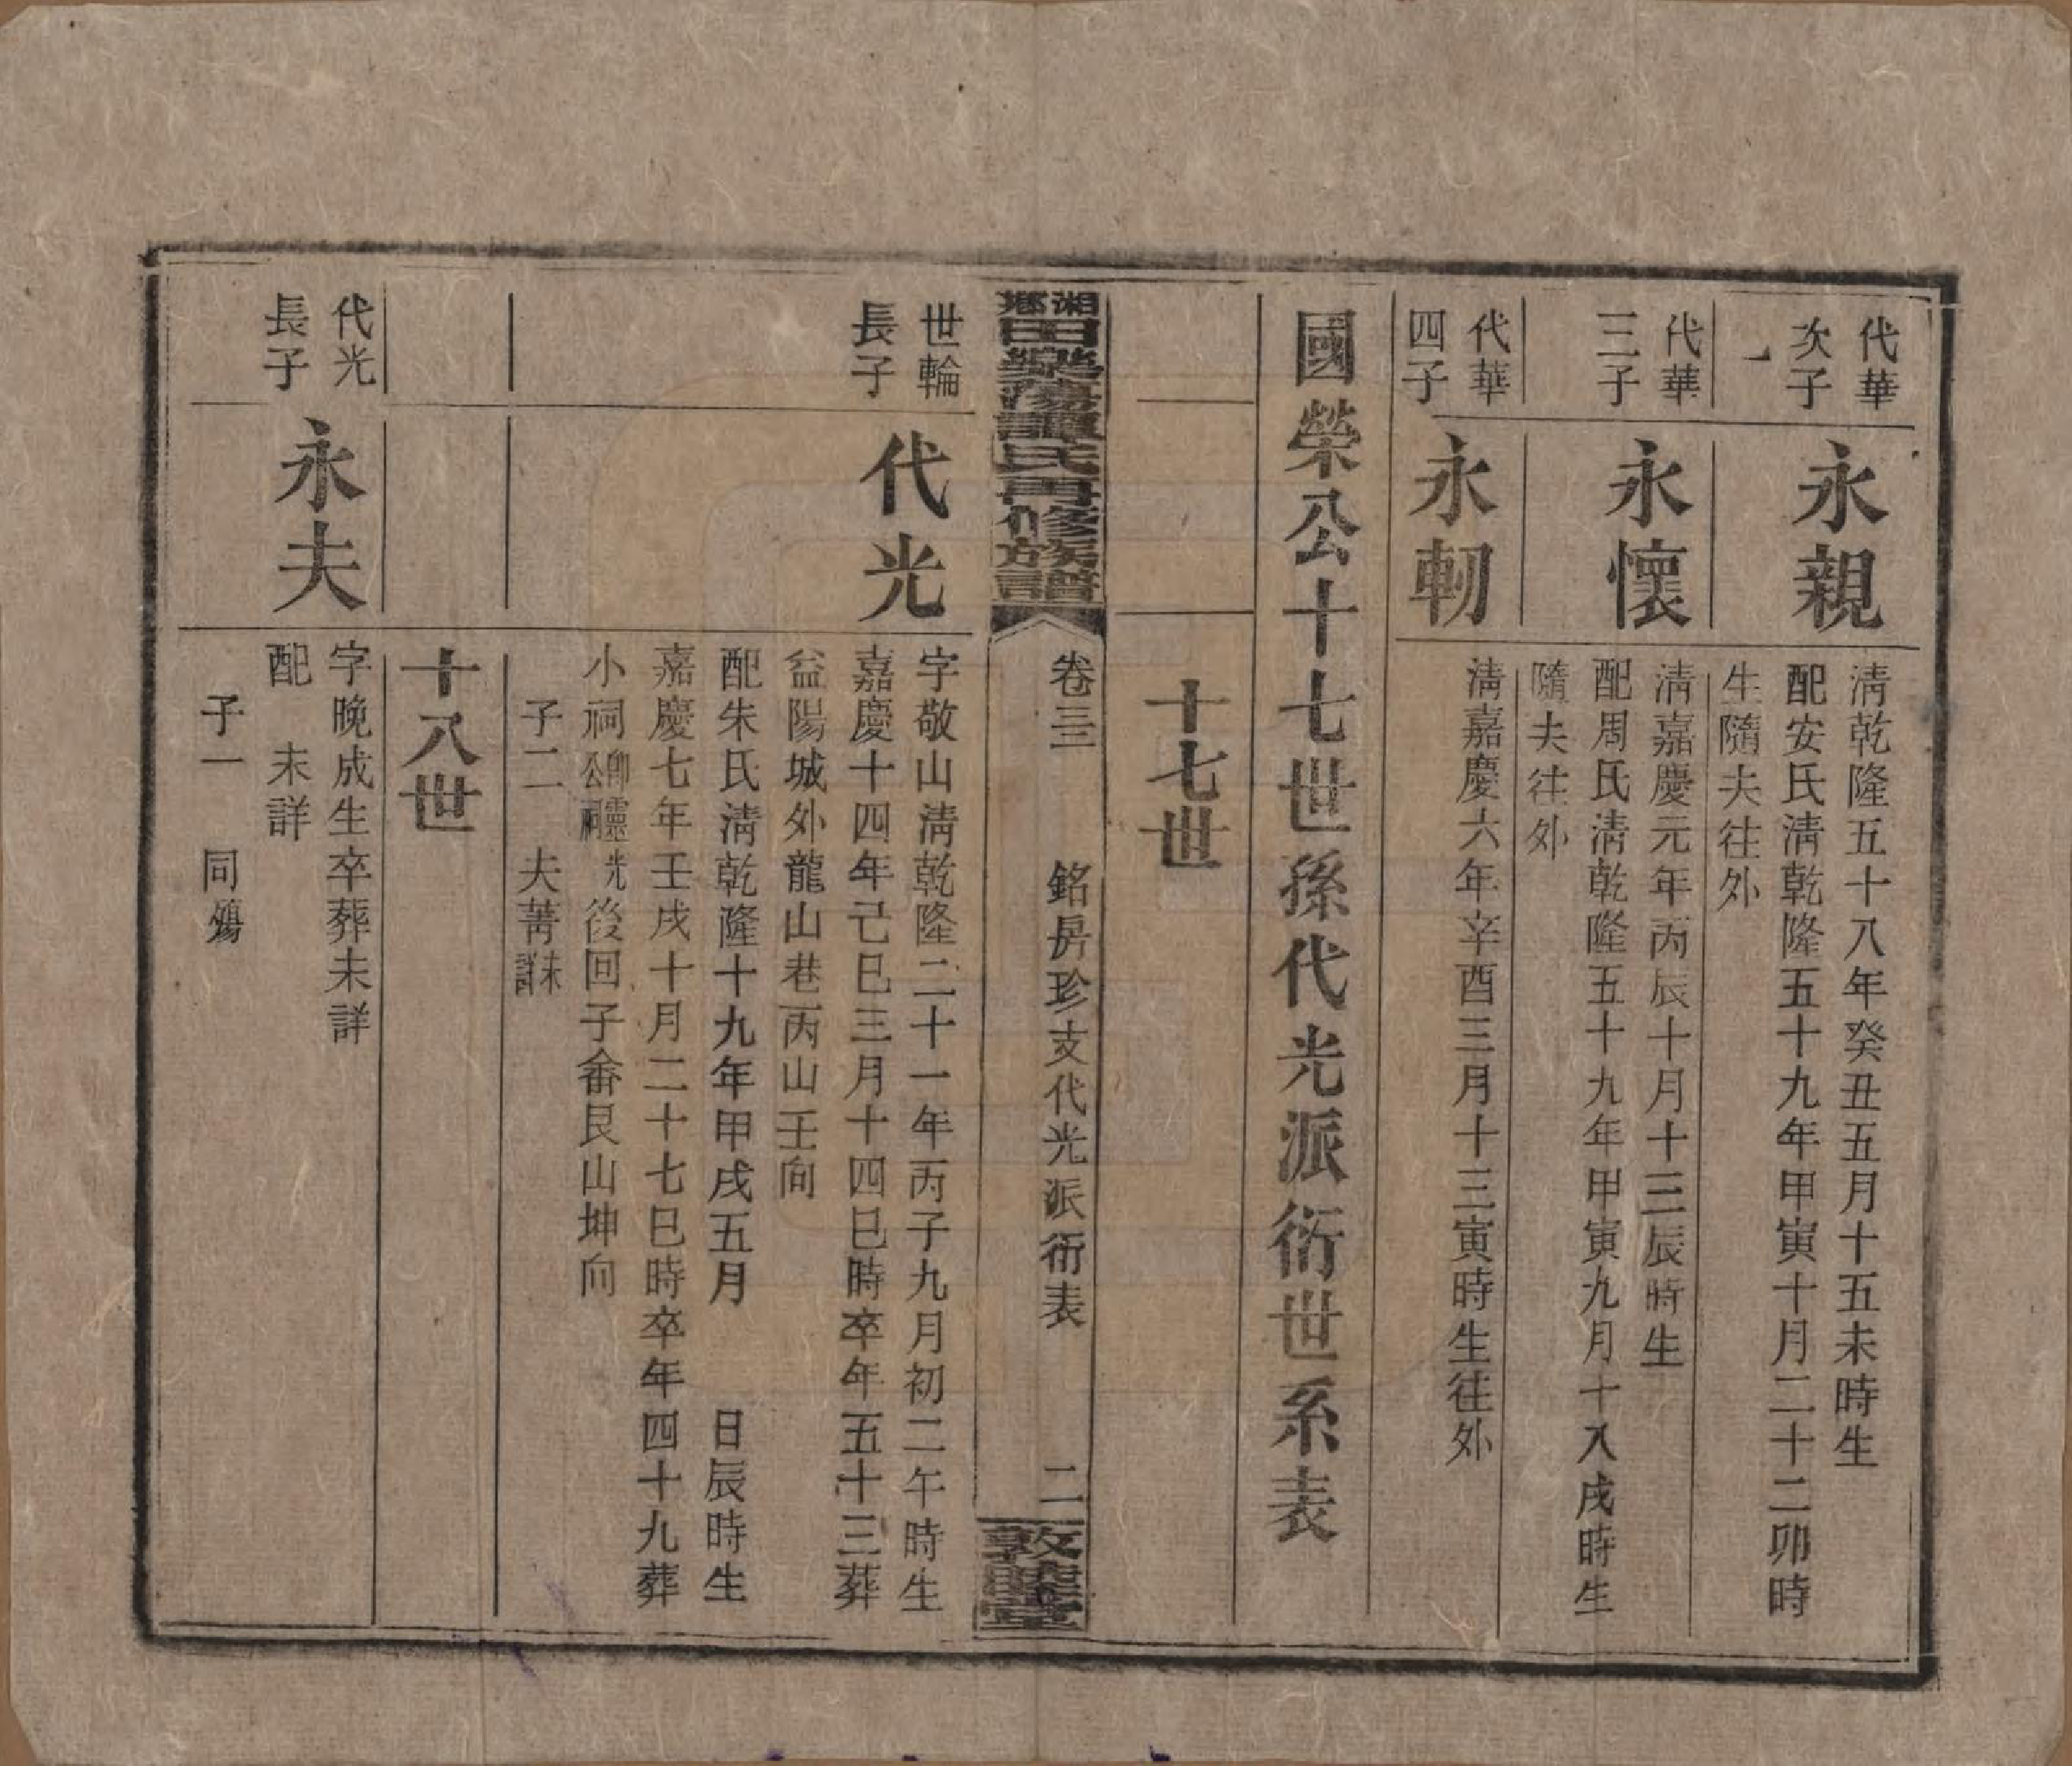 代華
次子
永親
清乾隆五十八年癸丑五月十五未時生
配安氏清乾隆五十九年甲寅十月二十二卯時
生隨夫往外
代華
三子
永懷
清嘉慶元年丙辰十月十三辰時生
配周氏清乾隆五十九年甲寅九月十八戌時生
隨夫往外
代華
四子
永軔
清嘉慶六年辛酉三月十三寅時生往外
國榮公十七世孫代光派衍世系表
十七世
湘鄉田樂蕩譚氏四修族譜
卷三 銘房珍支代光派衍表 二
敦睦堂
世輪
長子
代光
字敬山清乾隆二十一年丙子九月初二午時生
嘉慶十四年己巳三月十四巳時卒年五十三葬
益陽城外龍山巷丙山壬向
配朱氏清乾隆十九年甲戌五月 日辰時生
嘉慶七年壬戌十月二十七巳時卒年四十九葬
小祠卽靈光公祠後回子畲艮山坤向
子二 夫菁未詳
十八世
代光
長子
永夫
字晚成生卒葬未詳
配 未詳
子一 同殤